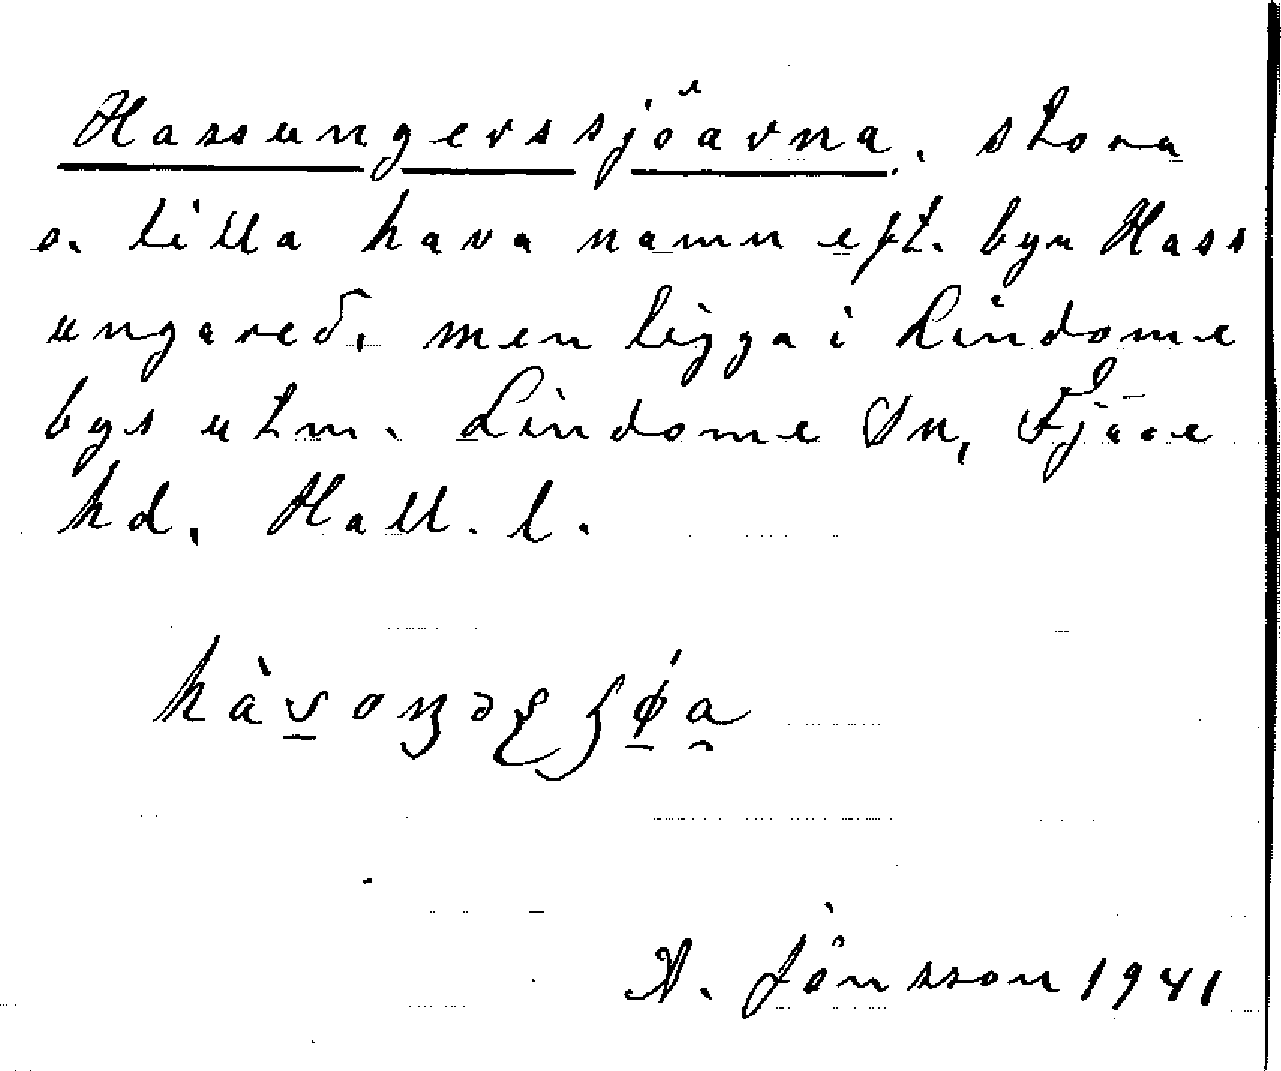 Hassungerssjöarna, stora
o. lilla hava namn eft. byn Hass
ungared, men ligga i Lindome
bys utm. Lindome Sn, Fjäre
hd, Hall. l.
A. Jönsson 1941